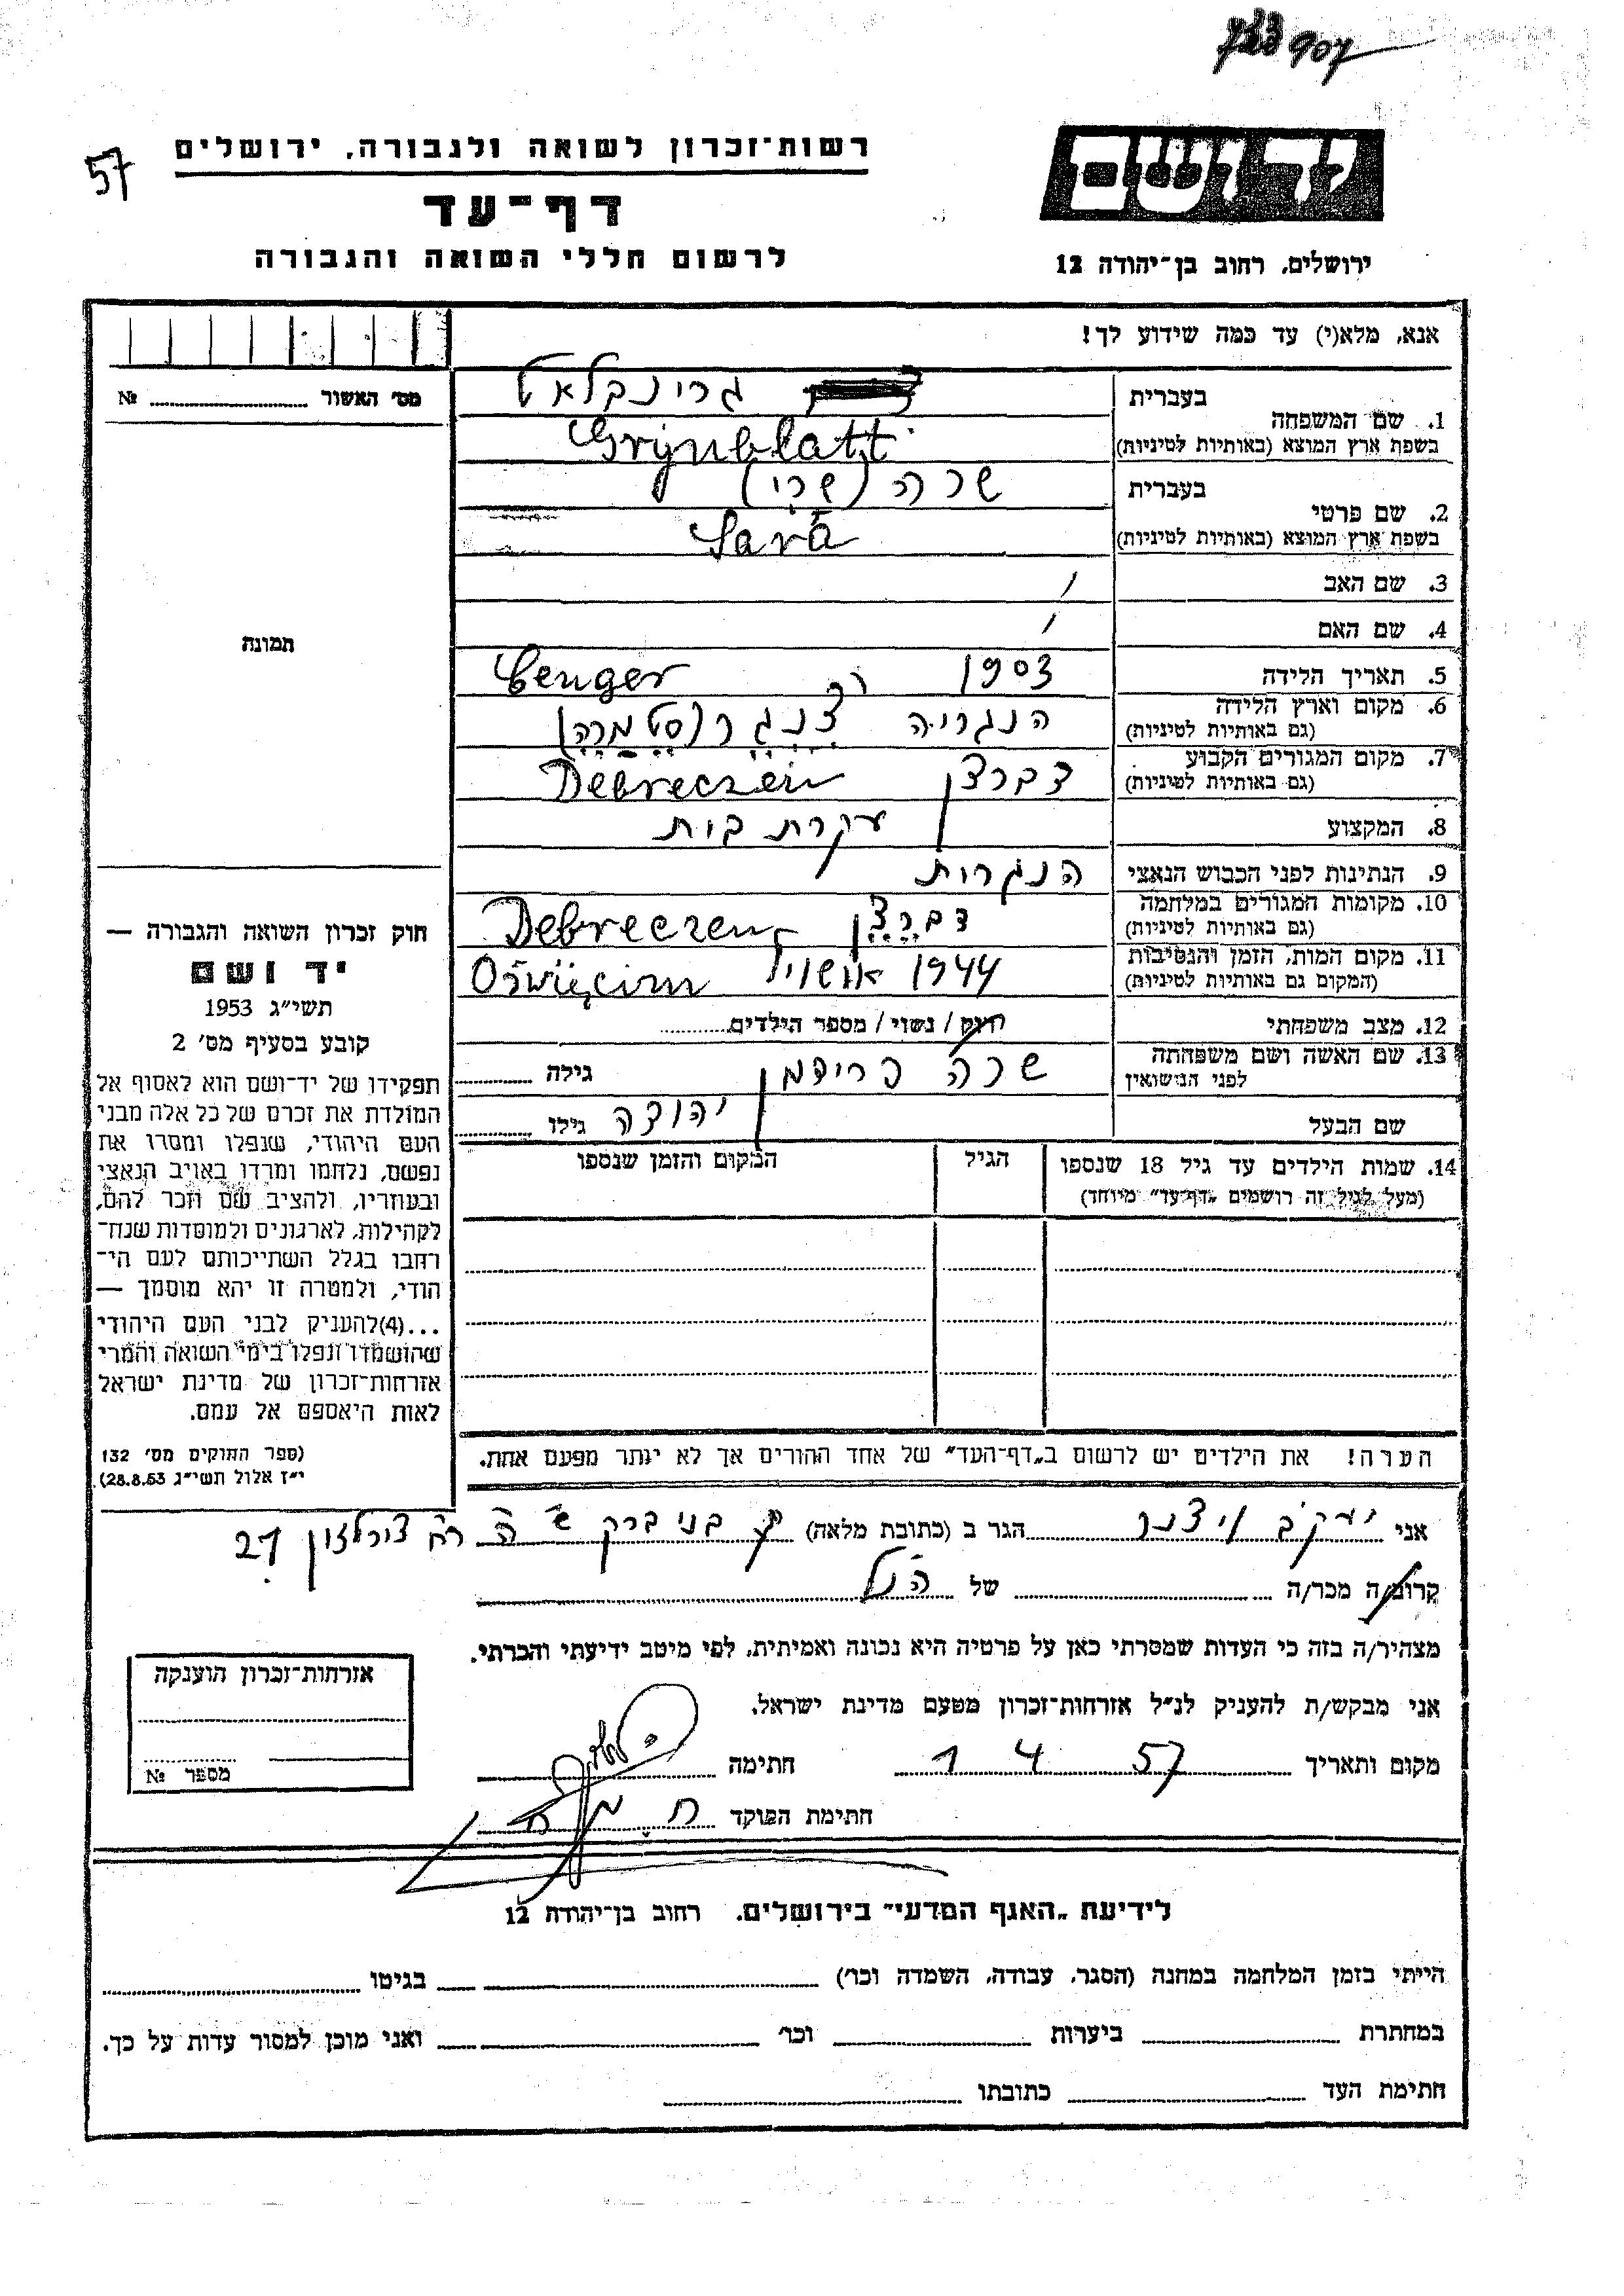 57
רשות־זכרון לשואה ולגבורה, ירושלים
דף־עד
לרשום חללי השואה והגבורה
יד ושם
ירושלים, רחוב בן־יהודה 12
אנא, מלא(י) עד כמה שידוע לך!
מס׳ האשור № 
1. שם המשפחה
בעברית גרינבלאט
בשפת ארץ המוצא (באותיות לטיניות) Grynblatt
2. שם פרטי
בעברית שרה (שרי)
בשפת ארץ המוצא (באותיות לטיניות) Sara
3. שם האב /
4. שם האם /
5. תאריך הלידה 1903 Cenger
6. מקום וארץ הלידה הנגריה צנגר
(גם באותיות לטיניות)
7. מקום המגורים הקבוע דברצן Debreczen
(גם באותיות לטיניות)
8. המקצוע עקרת בית
9. הנתינות לפני הכבוש הנאצי הנגרית
10. מקומות המגורים במלחמה דברצן Debreczen
(גם באותיות לטיניות)
11. מקום המות, הזמן והנסיבות 1944 Oświęcim
(המקום גם באותיות לטיניות)
12. מצב משפחתי רווק / נשוי / מספר הילדים
13. שם האשה ושם משפחתה שרה פרידמן גילה
לפני הנישואין
שם הבעל יהודה גילו
14. שמות הילדים עד גיל 18 שנספו הגיל המקום והזמן שנספו
(מעל לגיל זה רושמים „דף־עד״ מיוחד)
הערה! את הילדים יש לרשום ב„דף־העד״ של אחד ההורים אך לא יותר מפעם אחת.
תמונה
חוק זכרון השואה והגבורה —
יד ושם
תשי״ג 1953
קובע בסעיף מס׳ 2
תפקידו של יד־ושם הוא לאסוף אל
המולדת את זכרם של כל אלה מבני
העם היהודי, שנפלו ומסרו את
נפשם, נלחמו ומרדו באויב הנאצי
ובעוזריו, ולהציב שם וזכר להם,
לקהילות, לארגונים ולמוסדות שנח־
רחבו בגלל השתייכותם לעם הי־
הודי, ולמטרה זו יהא מוסמך —
...(4) להעניק לבני העם היהודי
שהושמדו ונפלו בימי השואה והמרי
אזרחות־זכרון של מדינת ישראל
לאות היאספם אל עמם.
(ספר החוקים מס׳ 132
י״ז אלול תשי״ג 28.8.53)
אני יעקב ויצנר הגר ב (כתובת מלאה) בני ברק 27
קרוב/ה מכר/ה של הנ״ל
מצהיר/ה בזה כי העדות שמסרתי כאן על פרטיה היא נכונה ואמיתית, לפי מיטב ידיעתי והכרתי.
אני מבקש/ת להעניק לנ״ל אזרחות־זכרון מטעם מדינת ישראל.
מקום ותאריך 1 4 57 חתימה
חתימת הפוקד
אזרחות־זכרון הוענקה
מספר №
לידיעת „האגף המדעי״ בירושלים, רחוב בן־יהודה 12
הייתי בזמן המלחמה במחנה (הסגר, עבודה, השמדה וכו׳) בגיטו
במחתרת ביערות וכו׳ ואני מוכן למסור עדות על כך.
חתימת העד כתובתו